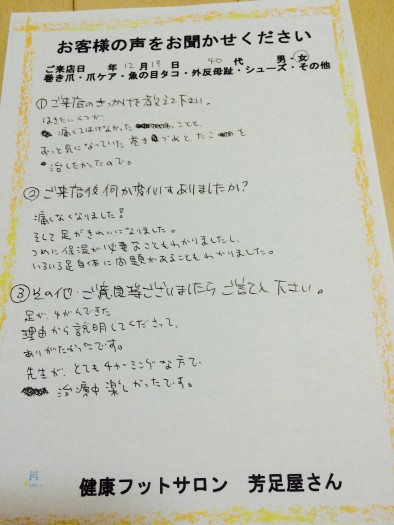 お客様の声をお聞かせください
ご来店日 年12月19日 40代 男・女
巻き爪・爪ケア・魚の目タコ・外反母趾・シューズ・その他
①ご来店のきっかけを教えて下さい。
はきたいくつが、
痛くてはけなかったことと、
ずっと気になっていた巻きづめと、たこを
治したかったので。
②ご来店後何か変化はありましたか?
痛くなくなりました!
そして足がきれいになりました。
つめに保湿が必要なこともわかりましたし、
いろいろ足自体に問題があることもわかりました。
③その他・ご意見等ございましたらご記入下さい。
足が、
理由から説明してくださって、
ありがたかったです。
先生が、とてもチャーミングな方で
治療中楽しかったです。
健康フットサロン 芳足屋さん